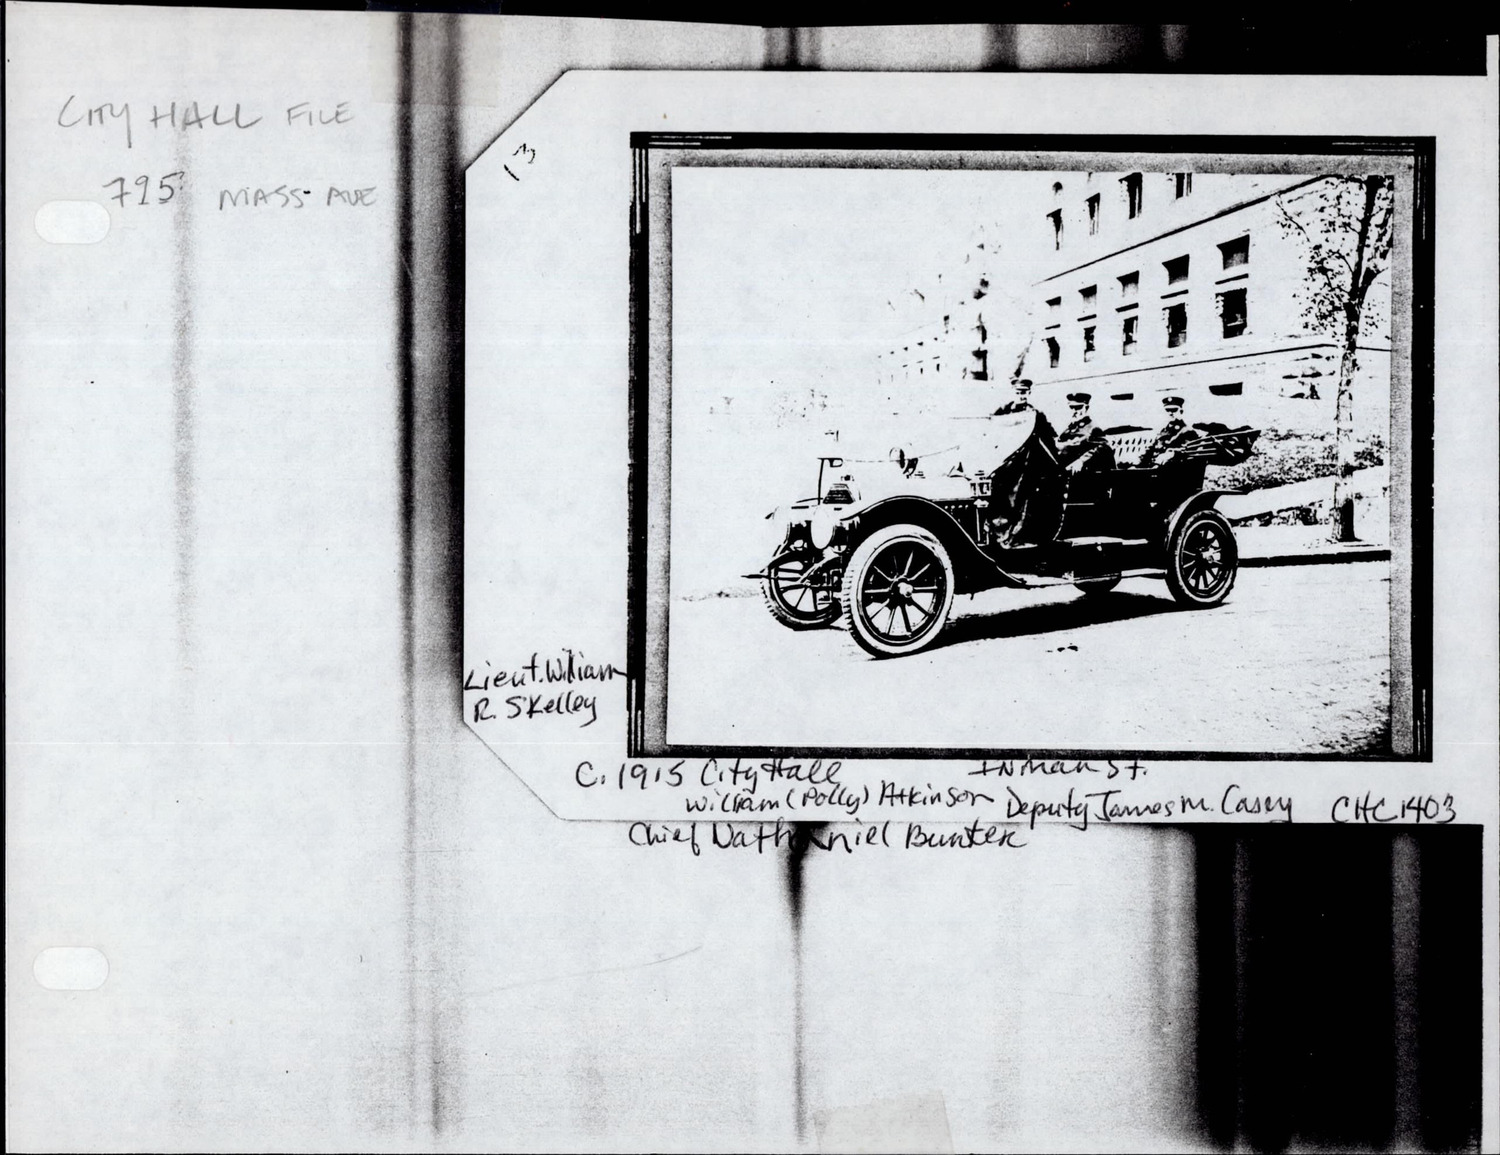 CITY HALL FILE
795 MASS AVE
Lieut. William
R. S Kelley
C. 1915 City Hall Inman St.
William (Polly) Atkinson Deputy James M. Casey CHC 1403
Chief Nathaniel Bunker